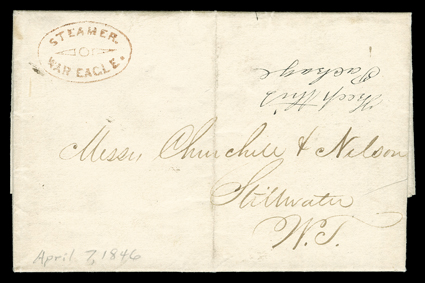 STEAMER.
WAR EAGLE.
Keep this
Package
Messrs Churchill & Nelson
Stillwater
W.T.
April 7, 1846